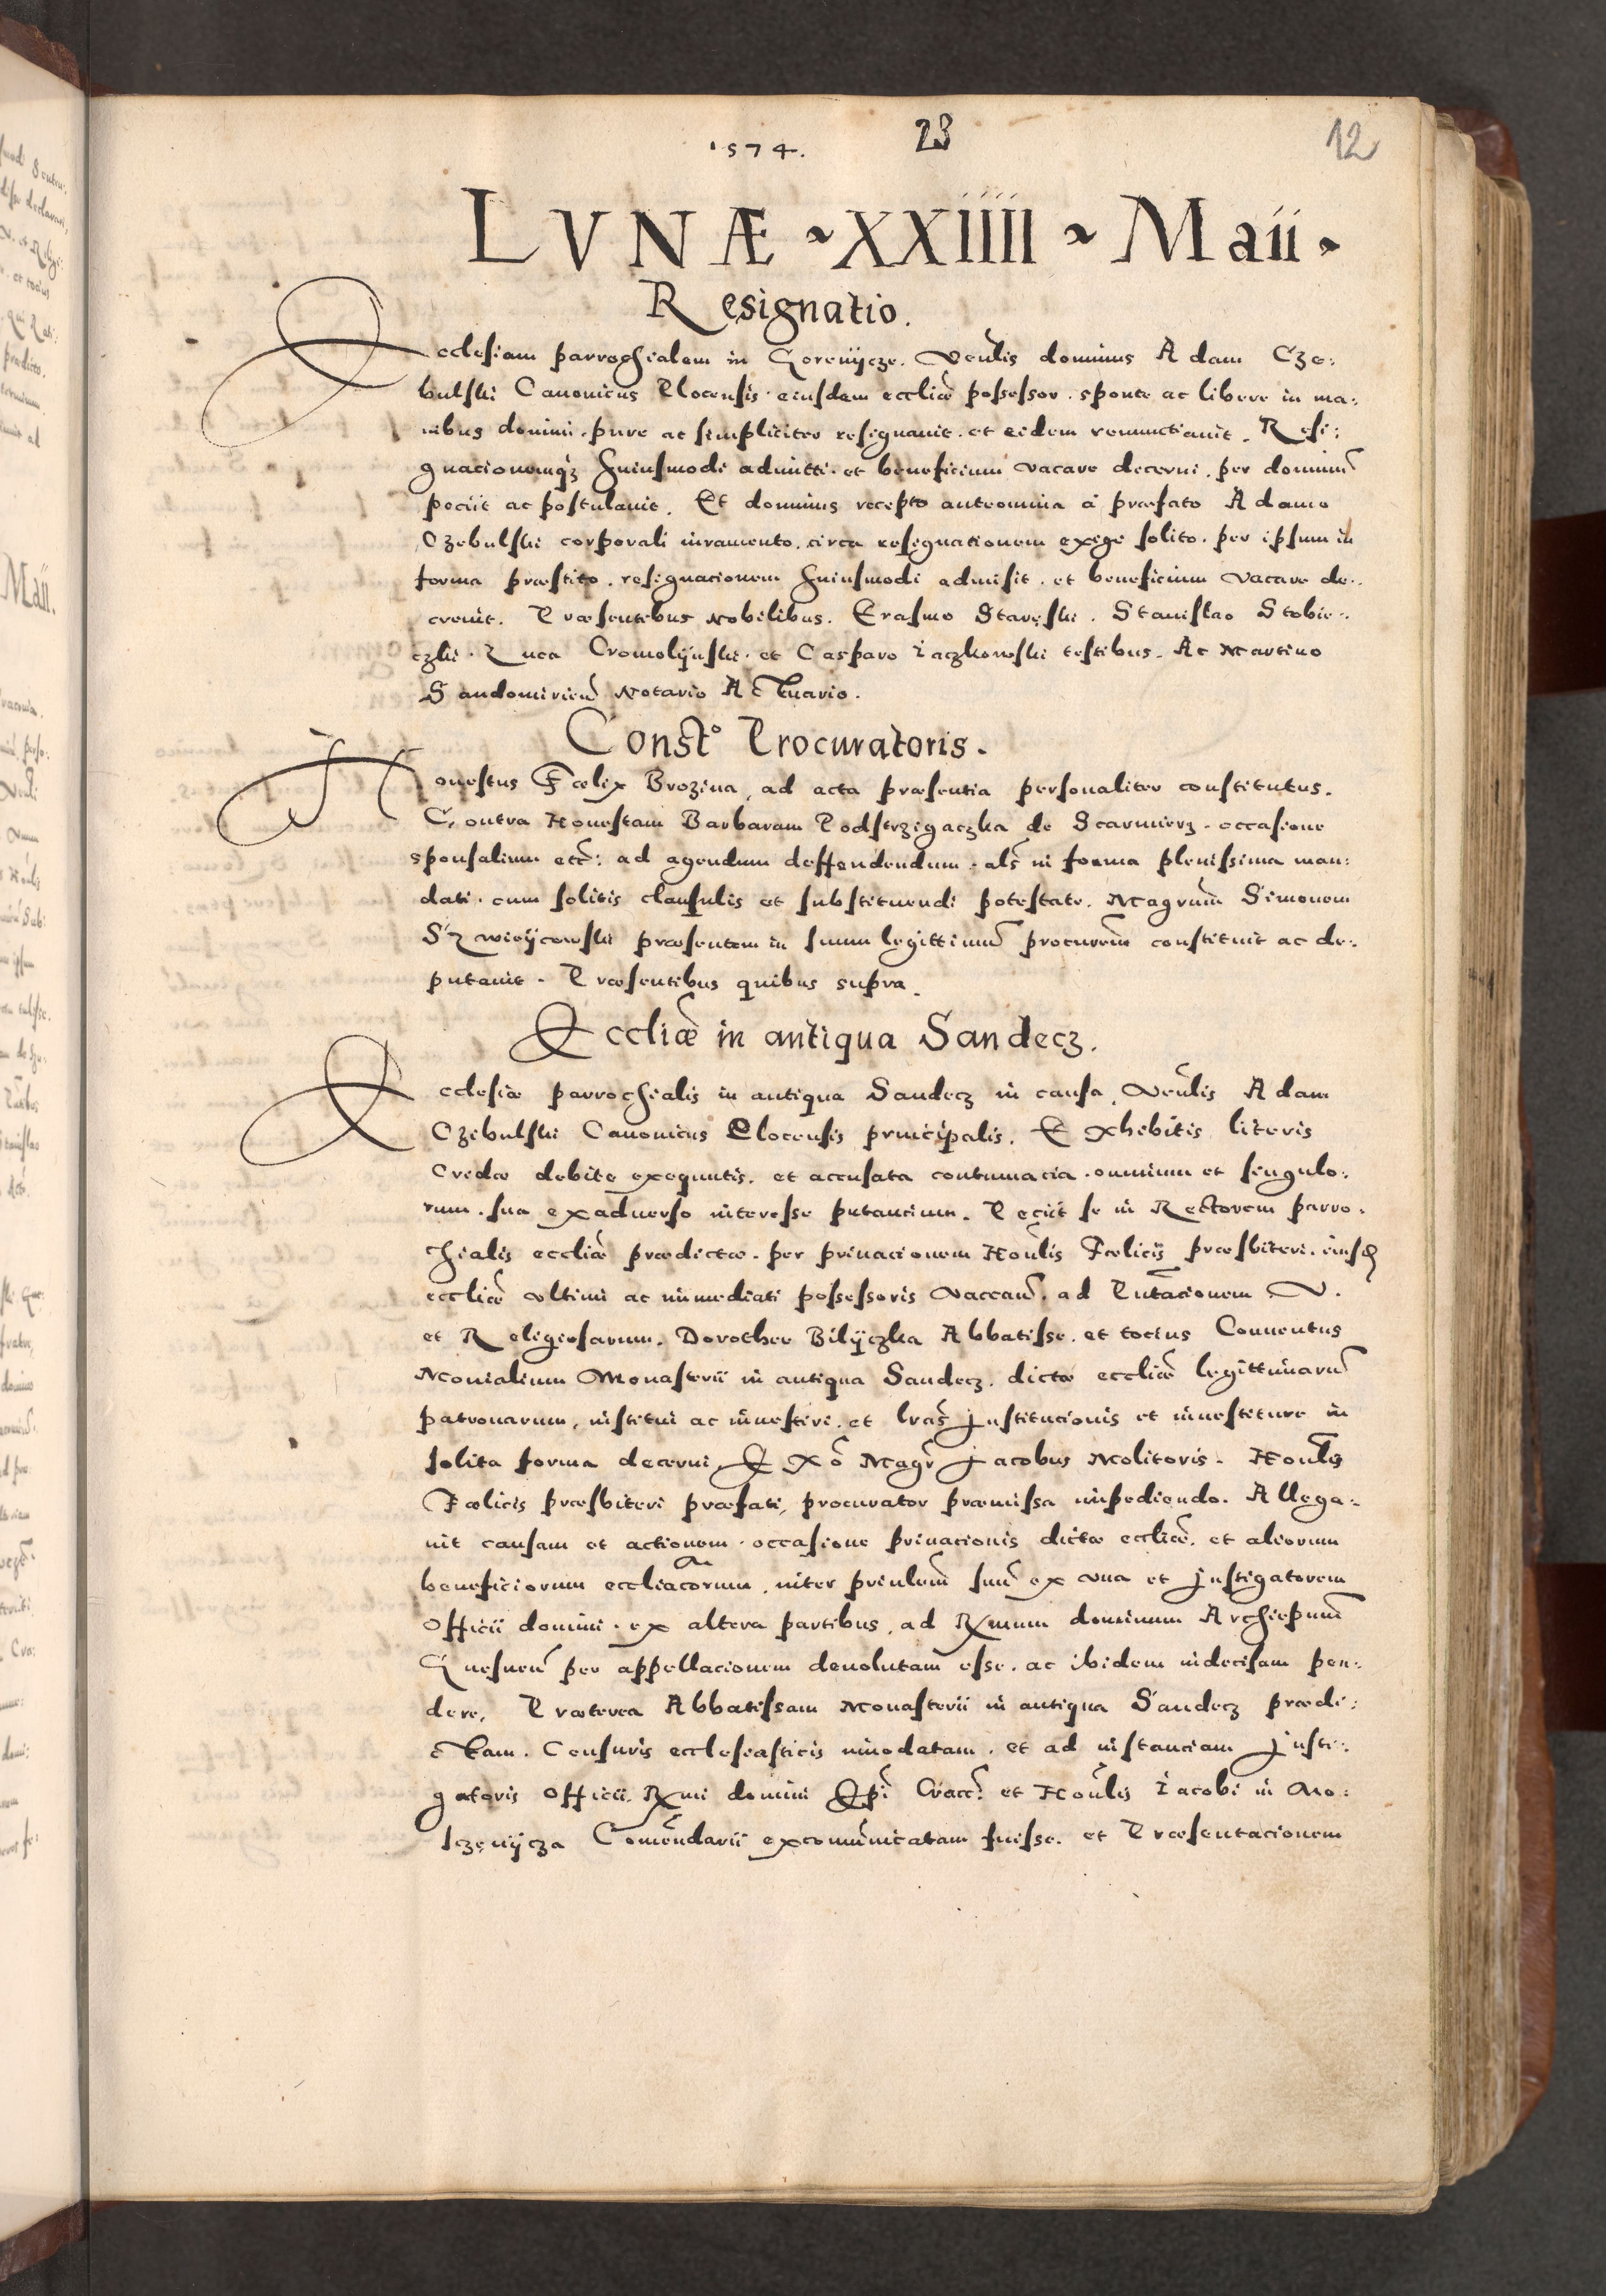 1574. 23 12
LVNÆ ~ XXIIII ~ Maii ~
Resignatio.
Ecclesiam parrochialem in Gorenÿcze. Venlis dominus Adam Cze:
bulski Canonicus Plocensis. eiusdem eccliæ possessor. sponte ac libere in ma:
nibus domini. pure ac simpliciter resignauit. et eidem renunctiauit. Resi:
gnacionemq3 huiusmodi admitti. et beneficium vacare decerni. per dominu
peciit ac postulauit. Et dominus recepto anteomnia á præfato Adamo
Czebulski corporali iuramento. circa resignationem exige solito. per ipsum in
forma præstito. resignacionem huiusmodi admisit. et beneficium vacare de:
creuit. Præsentibus nobilibus. Erasmo Staręski. Stanislao Stobie:
czki. Luca Cromolÿnski. et Casparo Iaczkowski testibus. Ac Martino
Sandomirien Notario Actuario.
Const.° Procuratoris.
Honestus Fœlix Brozina, ad acta præsentia personaliter constitutus.
Contra Honestam Barbaram Podstrzigaczka de Scarmierz. occasione
sponsalium etc: ad agendum deffendendum. als in forma plenissima man:
dati. cum solitis clausulis et substituendi potestate. Magrum Simonem
præsentem in suum legittimu procurem constituit ac de:
putauit. Præsentibus quibus supra.
Eccliæ in antiqua Sandecz.
Ecclesiæ parrochialis in antiqua Sandecz in causa, Venlis Adam
Czebulski Canonicus Plocensis principalis. Exhibitis literis
Credæ debite exequutis. et accusata contumacia. omnium et singulo:
rum. sua exaduerso interesse putancium. Peciit se in Rectorem parro:
chialis eccliæ prædictæ. per priuacionem Honlis Fœlicis præsbiteri. eiusd
eccliæ vltimi ac immediati possessoris vaccan. ad Pntacionem V.
et Religiosarum. Dorothee Bilÿczka Abbatisse. et tocius Conuentus
Monialium Monasterii in antiqua Sandecz. dictæ eccliæ legittimaru
patronarum, institui ac inuestiri. et lras institucionis et inuestiture in
solita forma decerni. Ex° Magr Jacobus Molitoris. Honlis
Fœlicis præsbiteri præfati, procurator præmissa impediendo. Allega:
uit causam et actionem. occasione priuacionis dictæ eccliæ. et aliorum
beneficiorum eccliacorum, inter prinlem suu ex vna et instigatorem
officii domini. ex altera partibus, ad Rxmum dominum Archiepum
Gnesnen per appellacionem deuolutam esse. ac ibidem indecisam pen:
dere. Præterea Abbatissam Monasterii in antiqua Sandecz prædi:
ctam. Censuris ecclesiasticis innodatam. et ad instanciam Insti:
gatoris officii. Rxmi domini Epi Cracc. et Honlis Iacobi in Mo:
sczenÿcza Comendarii excomunicatam fuisse. et Præsentacionem